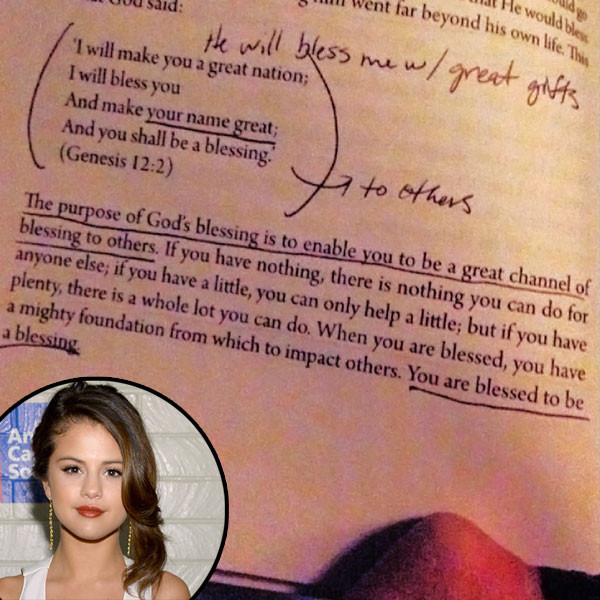 God said:
that He would bless
went far beyond his own life. This
He will bless me w/ great gifts
'I will make you a great nation;
I will bless you
And make your name great;
And you shall be a blessing.'
(Genesis 12:2)
to others
The purpose of God's blessing is to enable you to be a great channel of
blessing to others. If you have nothing, there is nothing you can do for
anyone else; if you have a little, you can only help a little; but if you have
plenty, there is a whole lot you can do. When you are blessed, you have
a mighty foundation from which to impact others. You are blessed to be
a blessing.